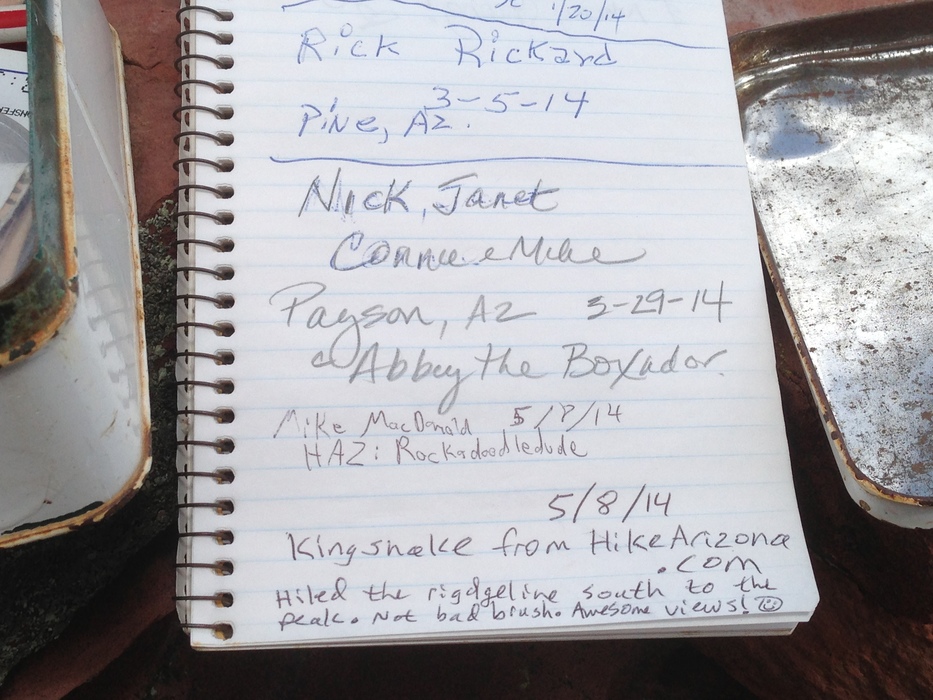 1/20/14
Rick Rickard
3-5-14
Pine, AZ.
Nick, Janet
Connie e Mike
Payson, AZ 3-29-14
Abbey the Boxador.
Mike MacDonald 5/7/14
HAZ: Rockadoodledude
5/8/14
Kingsnake from HikeArizona
.com
Hiked the rigdgeline south to the
peak. Not bad brush. Awesome views!